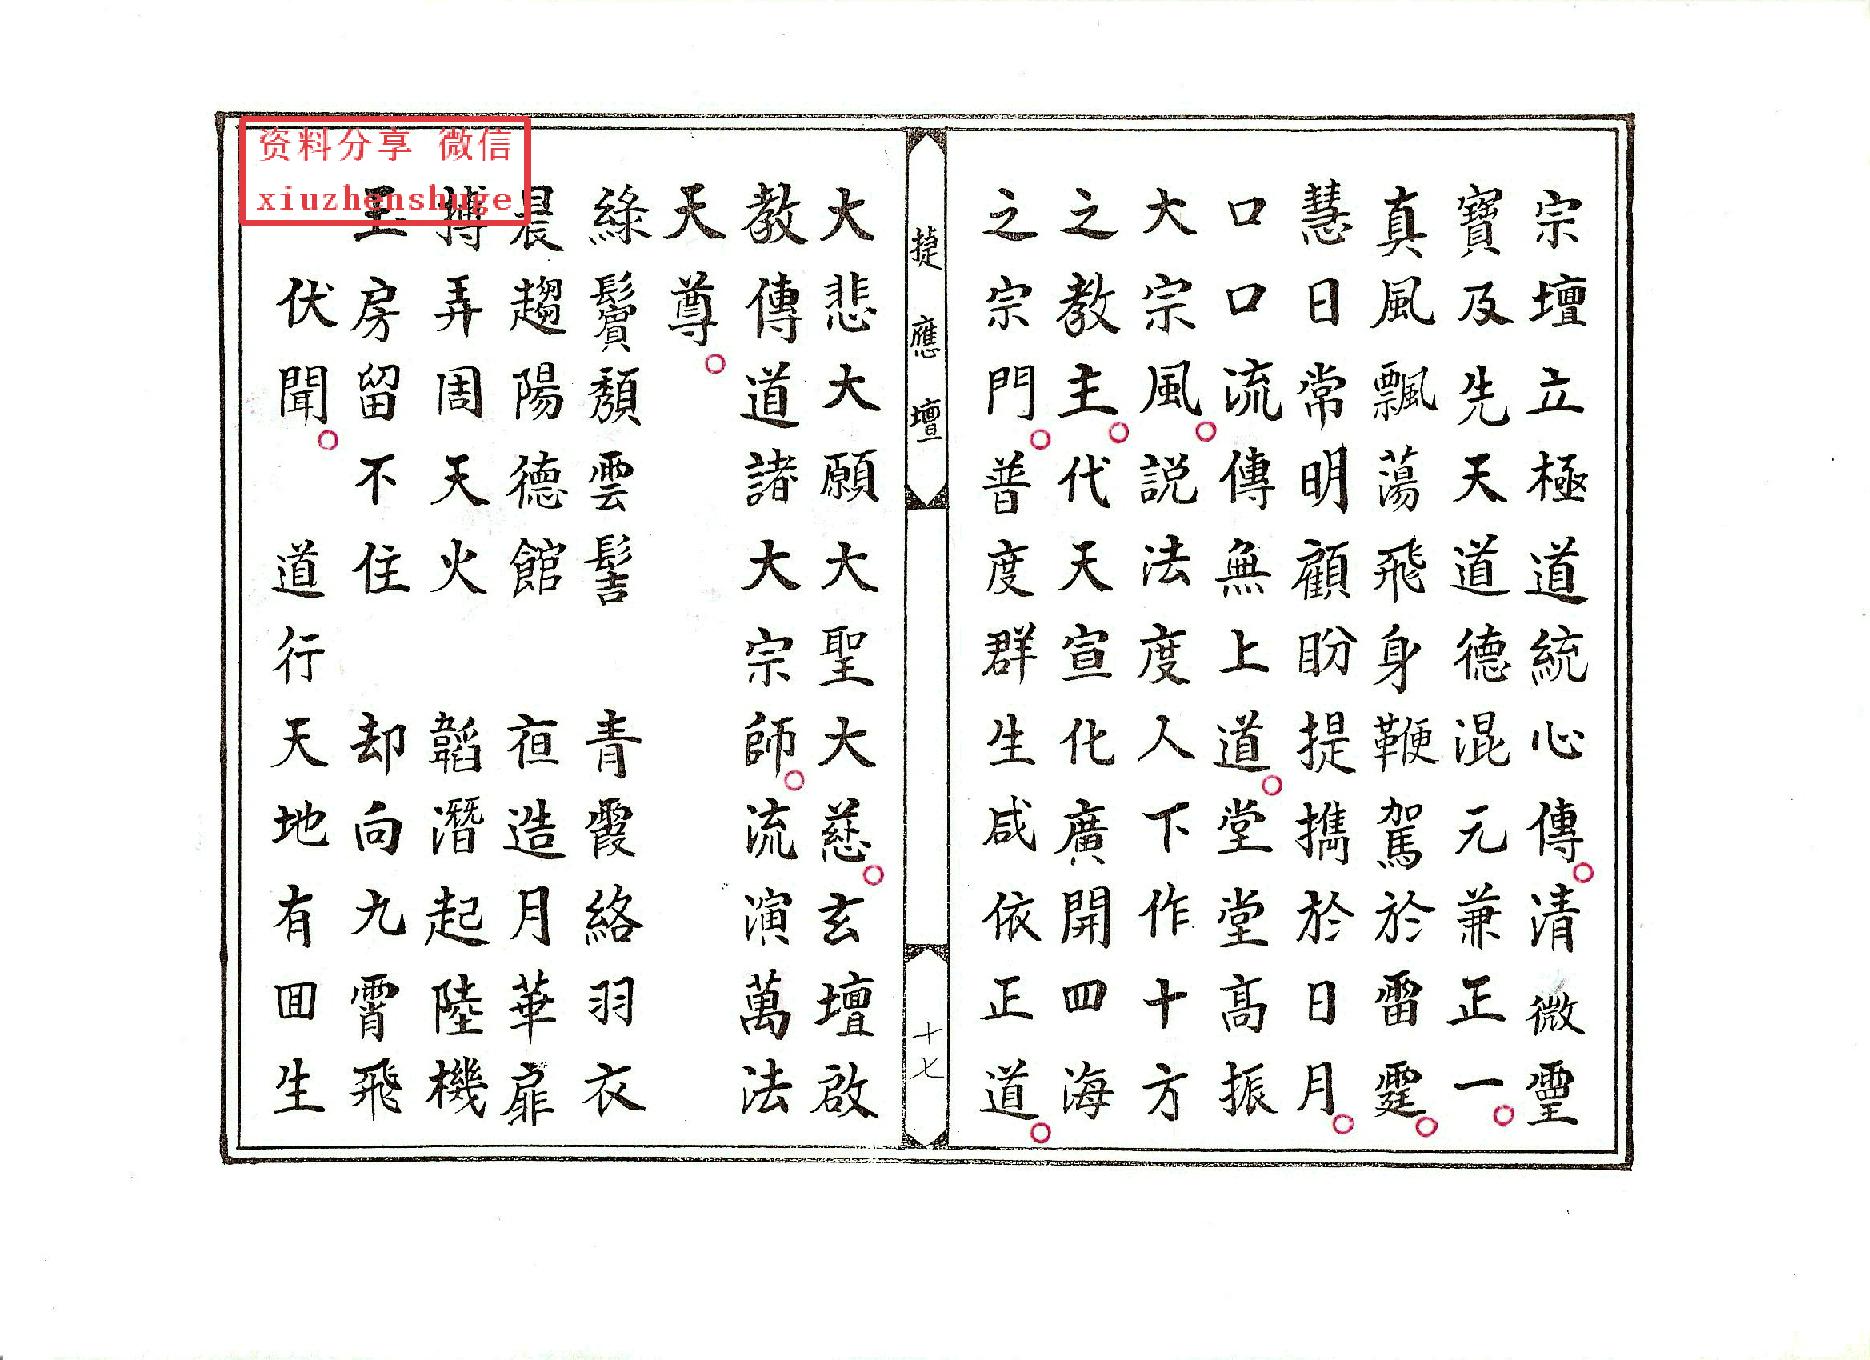 宗壇立極道統心傳。清微靈
寶及先天道德混元兼正一。
真風飄蕩飛身鞭駕於雷霆。
慧日常明顧盼提攜於日月。
口口流傳無上道。堂堂高振
大宗風。説法度人下作十方
之教主。代天宣化廣開四海
之宗門。普度群生咸依正道。
捷應壇
十七
大悲大願大聖大慈。玄壇啟
教傳道諸大宗師。流演萬法
天尊。
綠鬢頹雲髻 青霞絡羽衣
晨趨陽德館 夜造月華扉
搏弄周天火 韜潛起陸機
玉房留不住 却向九霄飛
伏聞。 道行天地有囬生
资料分享 微信
xiuzhenshuge